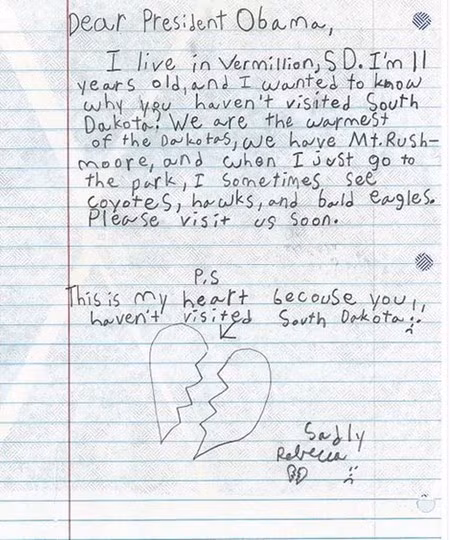 Dear President Obama,
I live in Vermillion, SD. I'm 11
years old, and I wanted to know
why you haven't visited South
Dakota? We are the warmest
of the Dakotas, we have Mt. Rush-
moore, and when I just go to
the park, I sometimes see
coyotes, hawks, and bald eagles.
Please visit us soon.
P.S
This is my heart becouse you
haven't visited South Dakota :(
Sadly
Rebecca